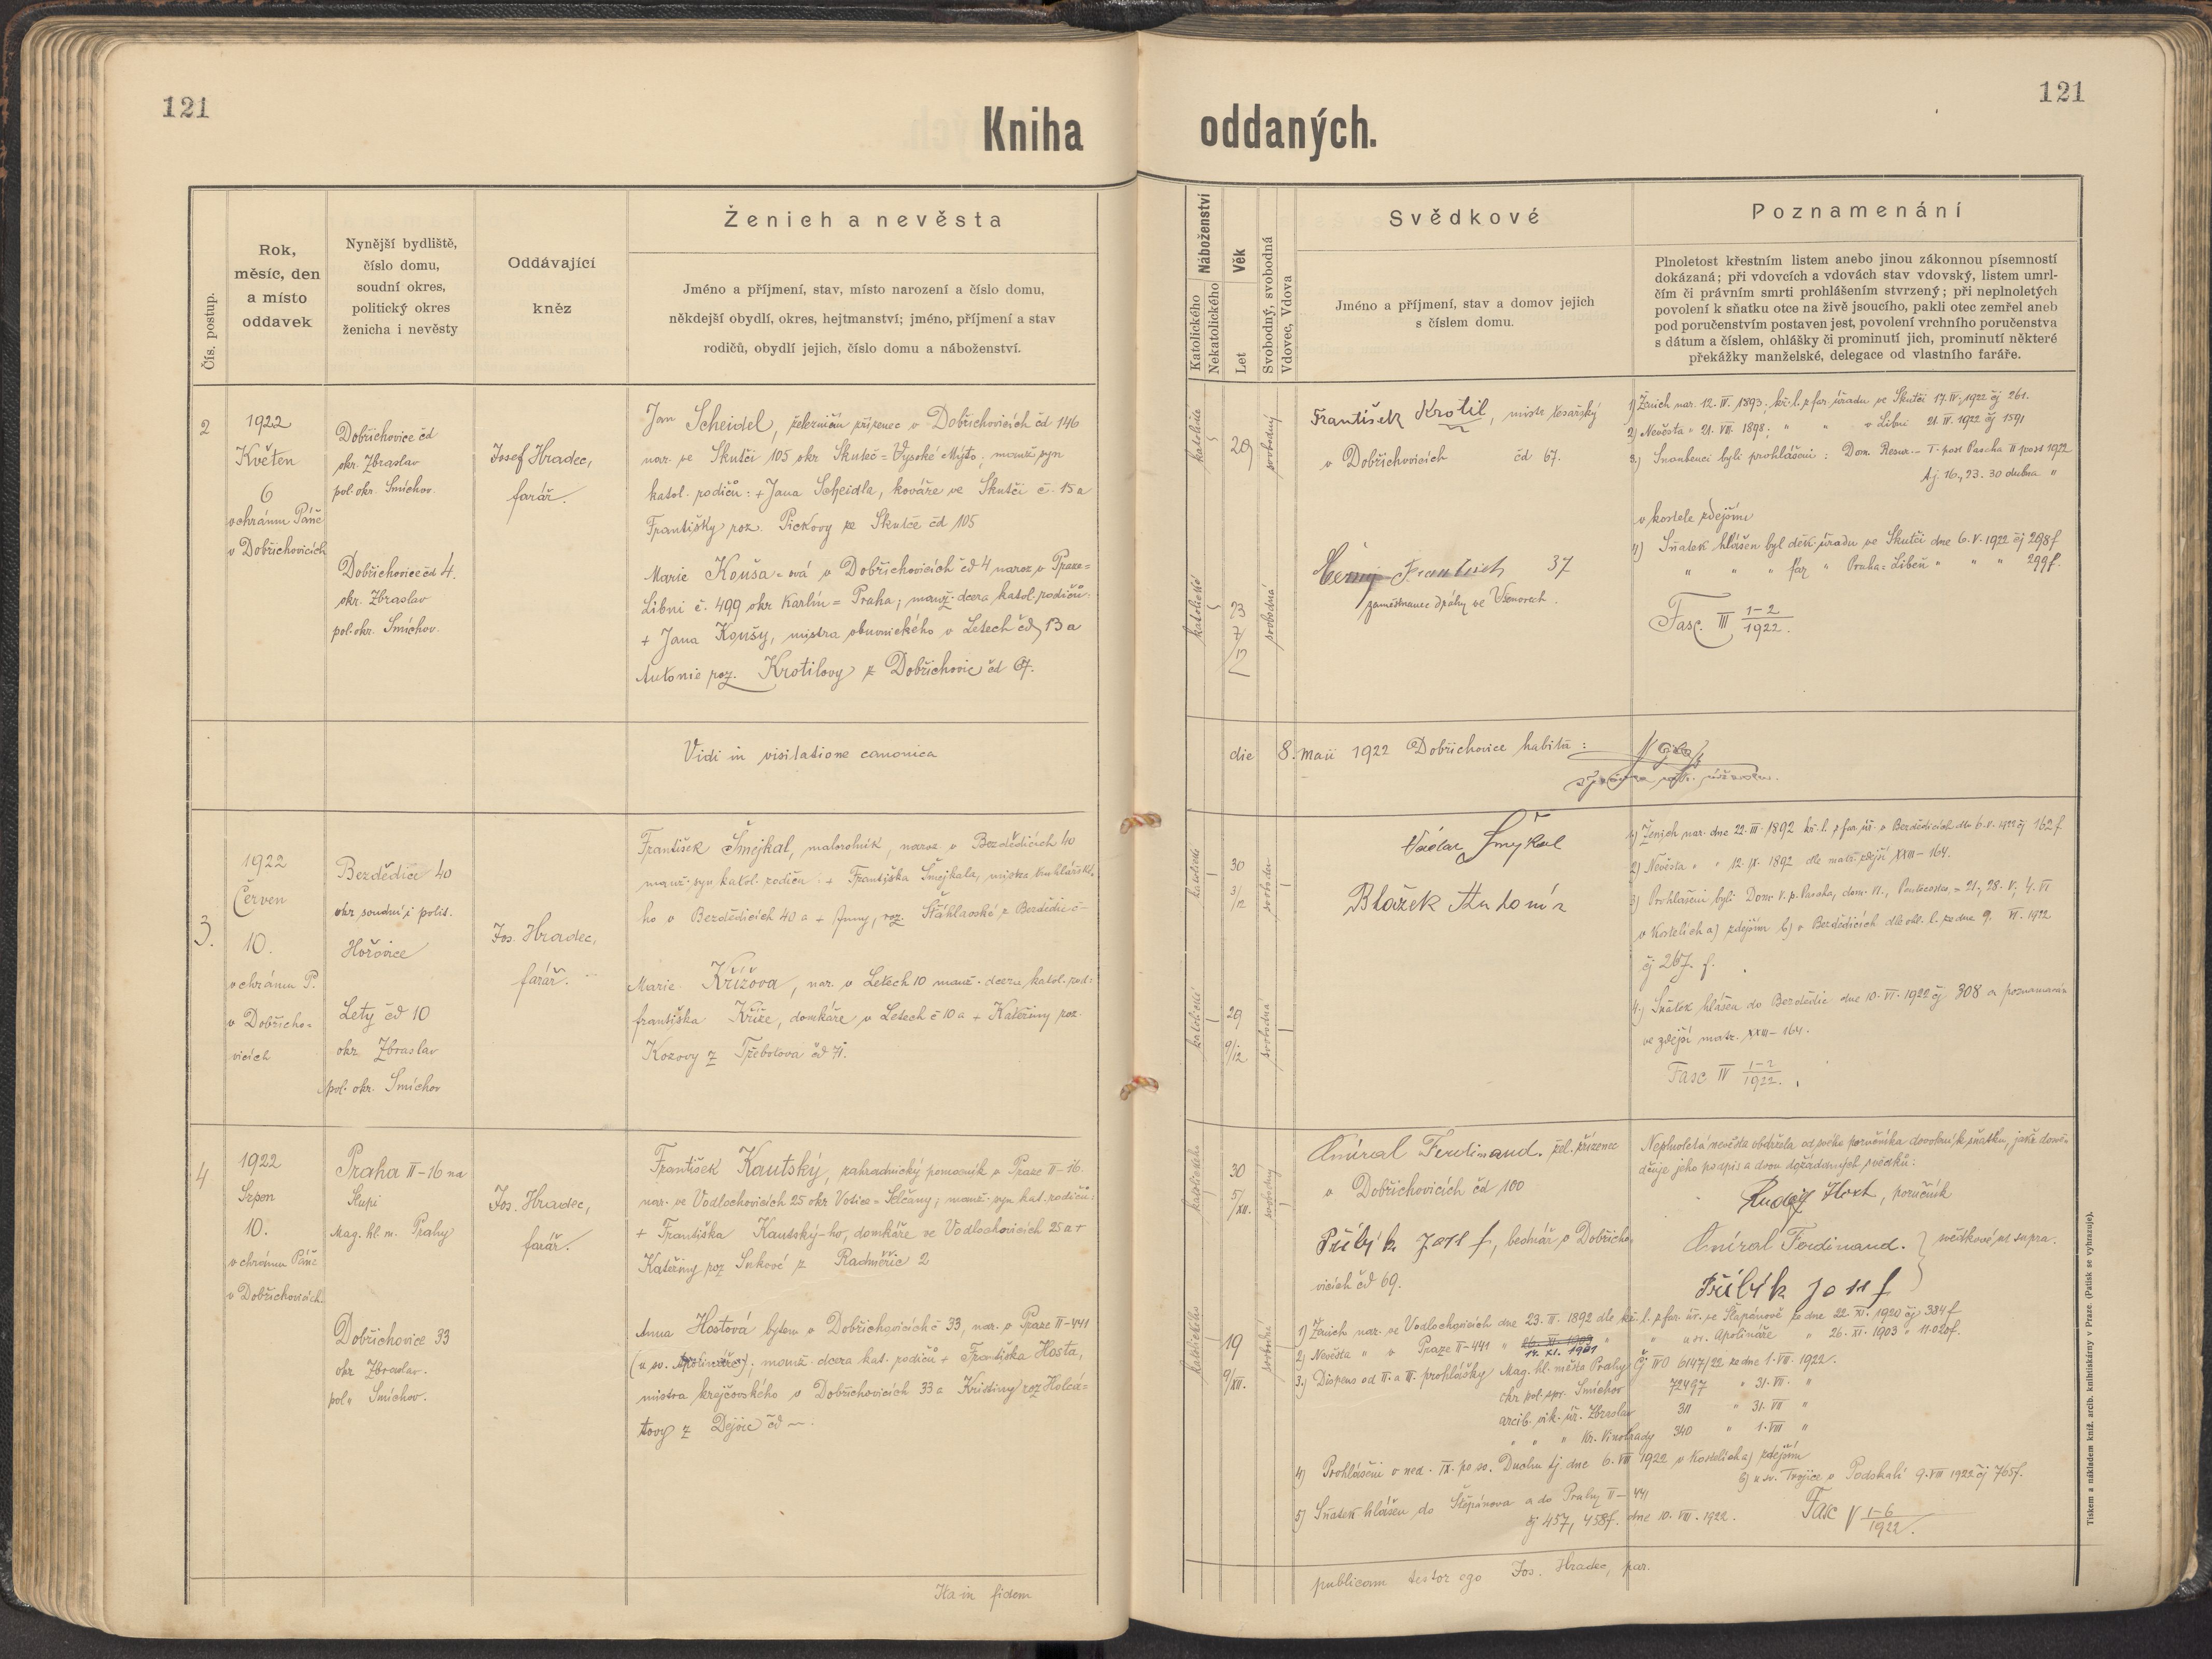 121
121
Kniha oddaných.
Čís. postup.
Rok,
měsíc, den
a místo
oddavek
Nynější bydliště,
číslo domu,
soudní okres,
politický okres
ženicha i nevěsty
Oddávající
kněz
Ženich a nevěsta
Jméno a příjmení, stav, místo narození a číslo domu,
někdejší obydlí, okres, hejtmanství; jméno, příjmení a stav
rodičů, obydlí jejich, číslo domu a náboženství.
Náboženství
Katolického
Nekatolického
Věk
Let
Svobodný, svobodná
Vdovec, Vdova
Svědkové
Jméno a příjmení, stav a domov jejich
s číslem domu.
Poznamenání
Plnoletost křestním listem anebo jinou zákonnou písemností
dokázaná; při vdovcích a vdovách stav vdovský, listem umrl-
čím či právním smrti prohlášením stvrzený; při neplnoletých
povolení k sňatku otce na živě jsoucího, pakli otec zemřel aneb
pod poručenstvím postaven jest, povolení vrchního poručenstva
s dátum a číslem, ohlášky či prominutí jich, prominutí některé
překážky manželské, delegace od vlastního faráře.
2
1922
Květen
6
v chrámu Páně
v Dobřichovicích
Dobřichovice čd
okr. Zbraslav
pol. okr. Smíchov.
Dobřichovice čd 4.
okr. Zbraslav
pol. okr. Smíchov.
Josef Hradec,
farář.
Jan Scheidel, železniční zřízenec v Dobřichovicích čd 146
nar. ve Skutči 105 okr Skuteč = Vysoké Mýto, manž syn
katol. rodičů: + Jana Scheidla, kováře ve Skutči č. 15 a
Františky roz. Pickovy ze Skutče čd 105
Marie Kouša-ová v Dobřichovicích čd 4 naroz. v Praze-
Libni č. 499 okr Karlín = Praha; manž. dcera katol. rodičů:
+ Jana Koušy, mistra obuvnického v Letech čd 13 a
Antonie roz. Krotilovy z Dobřichovic čd 67.
katolické
29
svobodný
katolické
23
7/12
svobodná
František Krotil, mistr kosařský
v Dobřichovicích čd 67.
Černý František 37
zaměstnanec dráhy ve Všenorech.
1) Ženich nar. 12. IV. 1893; kř. l. z far. úřadu ve Skutči 17. IV. 1922 čj 261.
2) Nevěsta " 21. VII. 1898; " " v Libni 21. IV. 1922 čj 1591
3.) Snoubenci byli prohlášeni: Dom. Resur. - I. post Pascha II post 1922
tj. 16., 23. 30 dubna "
v kostele zdejším
4) Sňatek hlášen byl děk. úřadu ve Skutči dne 6. V. 1922 čj 298 f
" " " far " Praha = Libeň " " " 299 f.
Fasc. III 1-2/1922.
Vidi in visitatione canonica
die 8. Maii 1922 Dobřichovice habita:
3.
1922
Červen
10.
v chrámu P.
v Dobřicho-
vicích
Bezdědice 40
okr soudní i polit.
Hořovice
Lety čd 10
okr. Zbraslav
pol. okr. Smíchov
Jos. Hradec,
farář.
František Šmejkal, malorolník, naroz. v Bezdědicích 40
manž. syn katol. rodičů: + Františka Šmejkala, mistra truhlářské-
ho v Bezdědicích 40 a + Anny, roz. Šťáhlavské z Bezdědic č-
Marie Křížova, nar. v Letech 10 manž. dcera katol. rod:
františka Kříže, domkáře v Letech č 10 a + Kateřiny roz.
Kozovy z Třebotova čd 71.
katolické
30
3/12
svoboden
katolické
29
9/12
svobodná
Václav Smejkal
Blažek Antonín
1) Ženich nar. dne 22. III. 1892 kř. l. z far. úř. v Bezdědicích dto 6. V. 1922 čj 162 f.
2) Nevěsta " " 12. IX. 1892 dle matr. zdejší XXIII - 164.
3) Prohlášeni byli Dom. V. p. Pascha, dom. VI., Pentecostes = 21., 28. V., 4. VI
v kostelích a) zdejším b) v Bezdědicích dle ohl. l. ze dne 9. VI. 1922
čj 267. f.
4.) Sňatek hlášen do Bezdědic dne 10. VI. 1922 čj 308 a poznamenán
ve zdejší matr. XXIII - 164.
Fasc IV 1-2/1922.
4
1922
Srpen
10.
v chrámu Páně
v Dobřichovicích.
Praha II-16 na
Slupi
Mag. hl. m. Prahy
Dobřichovice 33
okr Zbraslav.
pol " Smíchov.
Jos. Hradec,
farář.
František Kautský, zahradnický pomocník v Praze II-16.
nar. ve Vodlochovicích 25 okr Votice = Selčany; manž. syn kat. rodičů:
+ Františka Kautský-ho, domkáře ve Vodlochovicích 25 a +
Kateřiny roz Sukové z Radměřic 2
Anna Hostová bytem v Dobřichovicích č 33, nar. v Praze II-441
(u sv. Apolináře); manž. dcera kat. rodičů + Františka Hosta,
mistra krejčovského v Dobřichovicích 33 a Kristiny roz Holca-
tovy z Dejvic čd —.
katolického
30
5/XII.
svobodný
katolického
19
9/XII.
svobodná
Admiral Ferdinand, žel. zřízenec
v Dobřichovicích čd 100
Přibík Josef, bednář v Dobřicho-
vicích čd 69.
Neplnoletá nevěsta obdržela od svého poručníka dovolení k sňatku, jakž dosvě-
dčuje jeho podpis a dvou dožádaných svědků:
Rudolf Host, poručník
Admiral Ferdinand.
Přibík Josef
svědkové ut supra.
1) Ženich nar. ve Vodlochovicích dne 23. II. 1892 dle kř. l. z far. úř. ve Štěpánově ze dne 22. XI. 1920 čj 384 f
2) Nevěsta " v Praze II-441 " 26. XI. 1903 14. XI. 1901 " " u sv. Apolináře " 26. XI. 1903 " 11.020 f.
3.) Dispens od II. a III. prohlášky Mag. hl. města Prahy čj IVO 6147/22 ze dne 1. VII. 1922.
okr pol. spr. Smíchov 72497 " 31. VII. "
arcib. vik. úř. Zbraslav 311 " 31. VII "
" " " Kr. Vinohrady 340 " 1. VIII "
4) Prohlášeni v ned. IX. po sv. Duchu tj. dne 6. VIII 1922 v kostelích a) zdejším
b) u sv. Trojice v Podskalí 9. VIII 1922 čj 765 f.
5) Sňatek hlášen do Štěpánova a do Prahy II - 441
čj 457, 458 f. dne 10. VIII. 1922.
Fasc V 1-6/1922.
Ita in fidem publicam testor ego Jos. Hradec, par.
Tiskem a nákladem kníž. arcib. knihtiskárny v Praze. (Patisk se vyhrazuje).